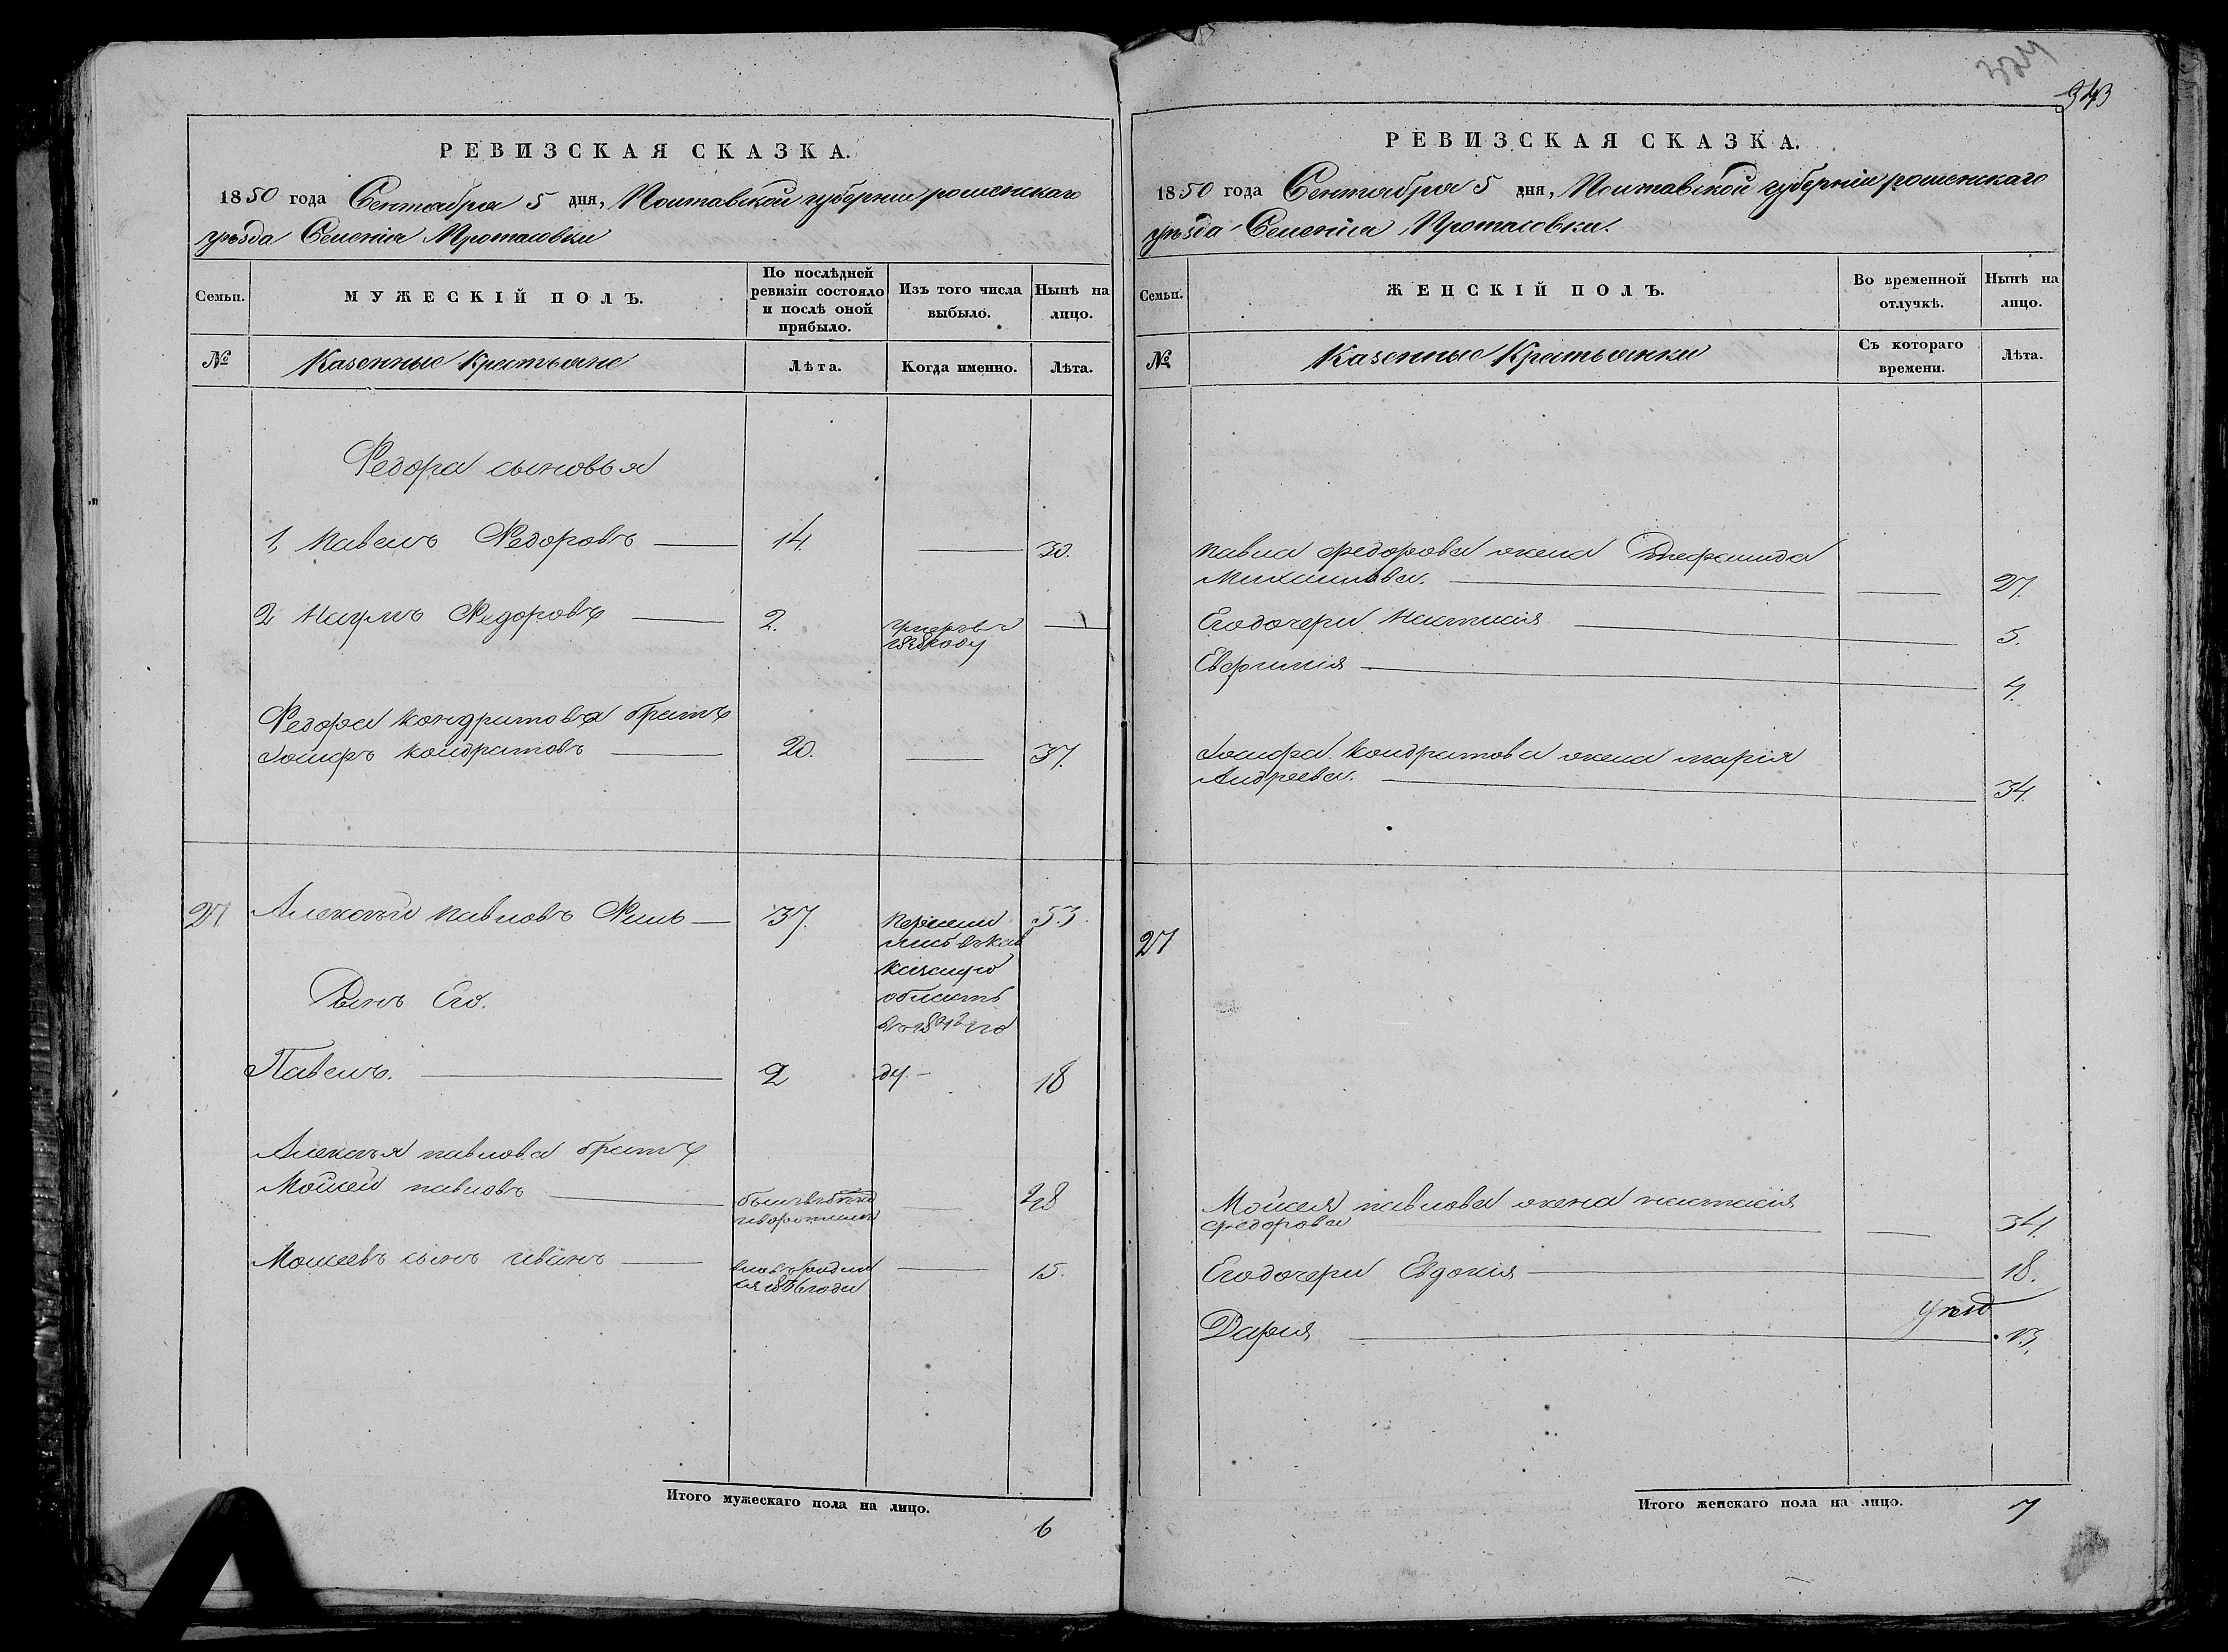 РЕВИЗСКАЯ СКАЗКА.
1850 года Сентабра 5 дня, Полтавской губернии роменскаго
уезда Селенія Протасовки
Семьи.
МУЖЕСКІЙ ПОЛЪ.
По послѣдней ревизіи состояло и послѣ оной прибыло.
Изъ того числа выбыло.
Нынѣ на лицо.
№
Казенные Крестьяне
Лѣта.
Когда именно.
Лѣта.
Федора сыновья
1, Павелъ Федоровъ 14. 30.
2 Наумъ Федоровъ 2. умеръ в
году
Федора кондратова братъ
Іосифъ кондратовъ 20. 37.
27 Алексей павловъ 37. 53.
область
Сынъ Его.
Павелъ. 2 ду. 18
Алексея павлова братъ
Мойсей павловъ 48
Моисеевъ сынъ иванъ 15.
Итого мужескаго пола на лицо.
6
343
РЕВИЗСКАЯ СКАЗКА.
1850 года Сентабра 5 дня, Полтавской губерніи роменскаго
уезда Селенія Протасовки.
Семьи.
ЖЕНСКІЙ ПОЛЪ.
Во временной отлучкѣ.
Нынѣ на лицо.
№
Казенные Крестьянки
Съ котораго времени.
Лѣта.
Павла федорова жена
Михайлова. 27.
Его дочери Настасія 5.
Евфимія 4.
Іосифа кондратова жена марія
Андреева. 34.
27
Мойсея павлова жена настасія
федорова 34.
Его дочери Евдокія 18.
Дарія 13.
Итого женскаго пола на лицо.
7